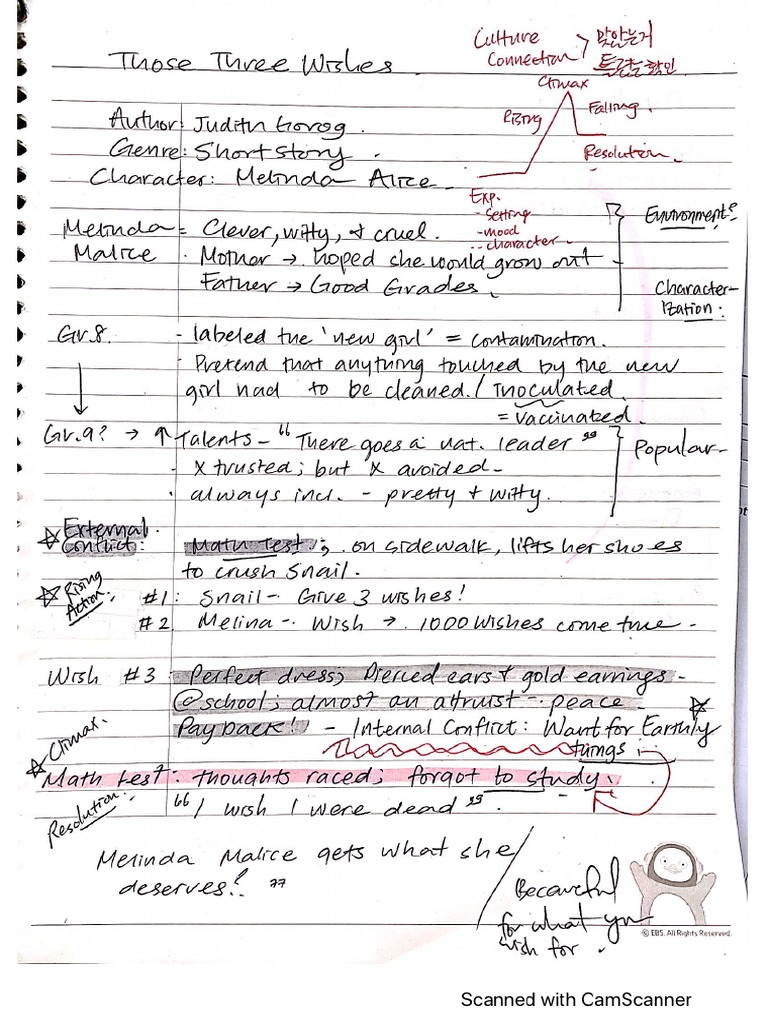 Culture
Connection > 맞았는거
틀린걸 확인
Those Three Wishes.
Climax
Rising
Falling.
Resolution.
Author: Judith Gorog.
Genre: Short story.
Character: Melinda Alice.
Exp.
- Setting
- mood
- character.
Environment?
Melinda = Clever, witty, & cruel.
Malice · Mother → hoped she would grow out
Father → Good Grades.
Character-
ization:
Gr.8. - labeled the 'new girl' = contamination.
- Pretend that anything touched by the new
girl had to be cleaned. / Inoculated.
= Vaccinated.
Gr.9? → ↑ Talents - "There goes a nat. leader"
Popular-
· X trusted; but X avoided -
· always incl. - pretty + witty.
☆ External
Conflict: Math test; on sidewalk, lifts her shoes
to crush snail.
☆ Rising
Action: #1: Snail - Give 3 wishes!
#2 Melina - Wish → 1000 wishes come true -
Wish #3 Perfect dress; Pierced ears + gold earrings -
@school; almost an altruist - peace -
Payback! - Internal Conflict: Want for Earthly ☆
things
☆ Climax.
Math test: thoughts raced; forgot to study.
Resolution: "I wish I were dead".
Melinda Malice gets what she /
deserves! "
Be careful
for what you
wish for.
© EBS. All Rights Reserved.
Scanned with CamScanner